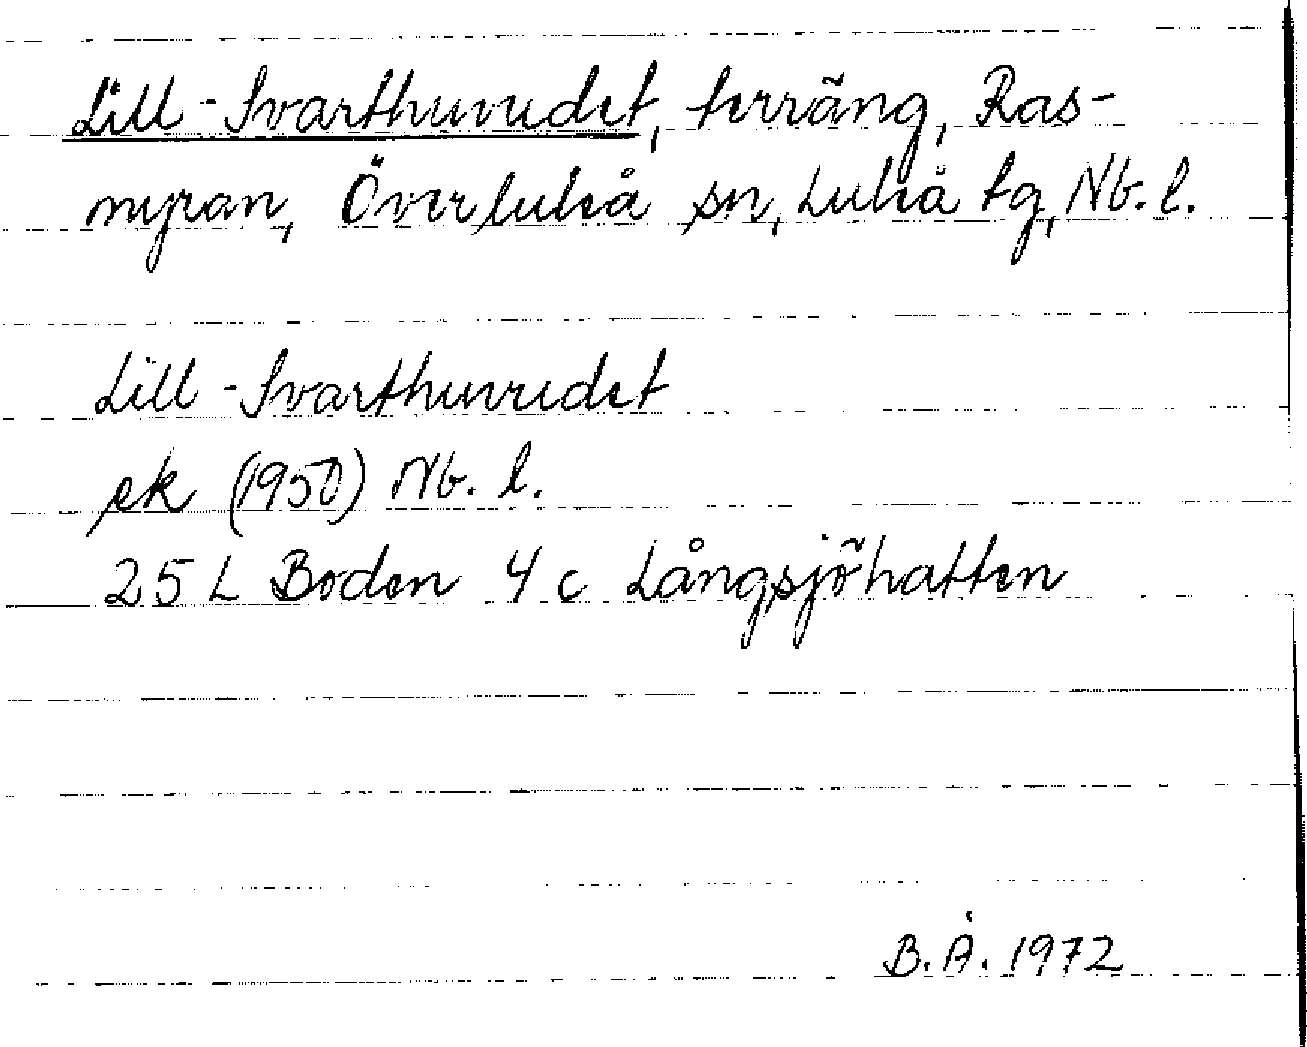 Lill-Svarthuvudet, terräng, Ras-
myran, Överluleå sn, Luleå tg, Nb. l.
Lill-Svarthuvudet
ek (1950) Nb. l.
25 L Boden 4 c Långsjöhatten
B.Å. 1972